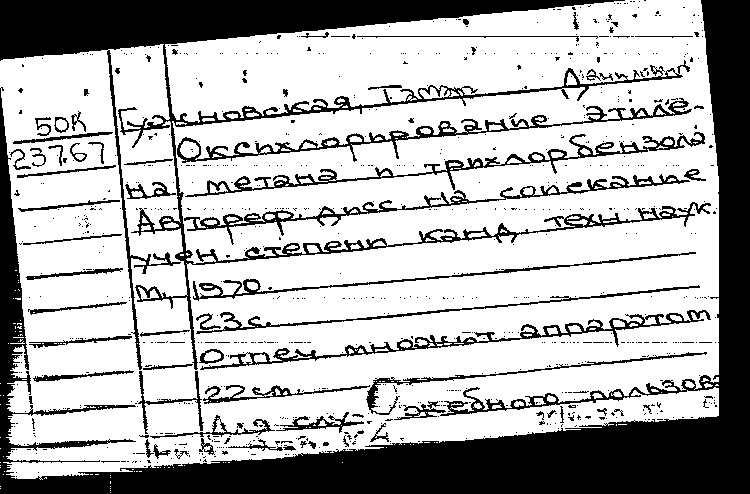 50К
237.67
Гужновская, Тамар Даниловна
Оксихлорирование этиле-
на метана и трихлорбензола.
Автореф. дисс. на соискание
учен. степени канд. техн. наук.
М., 1970.
23 с.
Отпеч. множит. аппаратом.
22 см.
Для служебного пользов